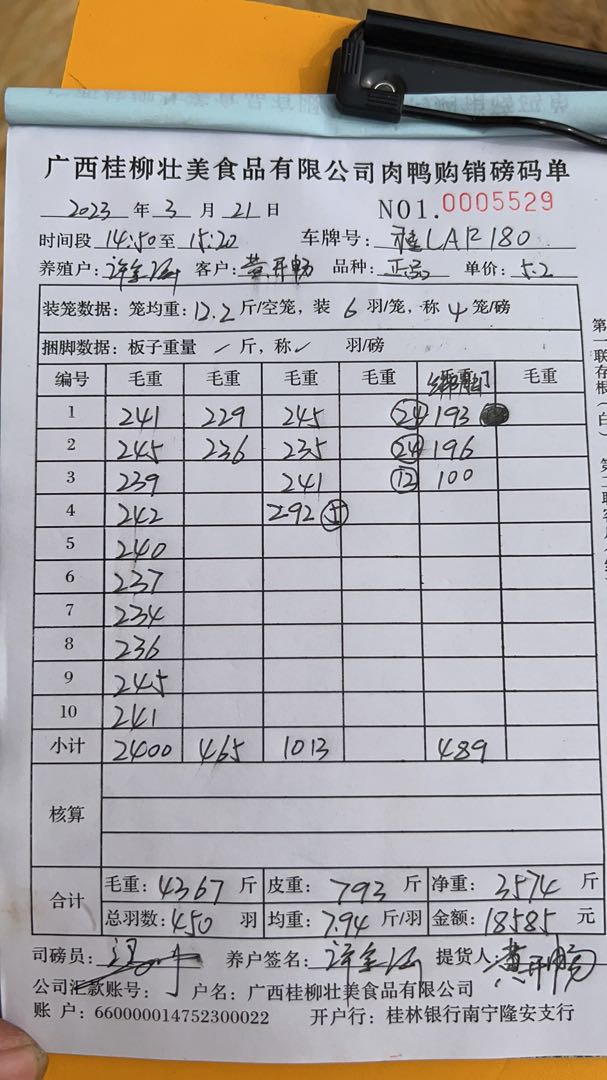 广西桂柳壮美食品有限公司肉鸭购销磅码单
2023 年 3 月 21 日 NO1. 0005529
时间段 14:50 至 15:20 车牌号: 桂LAR180
养殖户: 客户: 黄开畅 品种: 正品 单价: 5.2
装笼数据: 笼均重: 12.2 斤/空笼, 装 6 羽/笼, 称 4 笼/磅
捆脚数据: 板子重量 / 斤, 称 / 羽/磅
编号 毛重 毛重 毛重 毛重 毛重
1 241 229 245 24 193
2 245 236 235 24 196
3 239 241 12 100
4 242 292 5
5 240
6 237
7 234
8 236
9 245
10 241
小计 2400 465 1013 489
核算
合计
毛重: 4367 斤 皮重: 793 斤 净重: 3574 斤
总羽数: 450 羽 均重: 7.94 斤/羽 金额: 18585 元
司磅员: 养户签名: 提货人: 黄开畅
公司汇款账号: 户名: 广西桂柳壮美食品有限公司
账 户: 660000014752300022 开户行: 桂林银行南宁隆安支行
第一联存根(白)